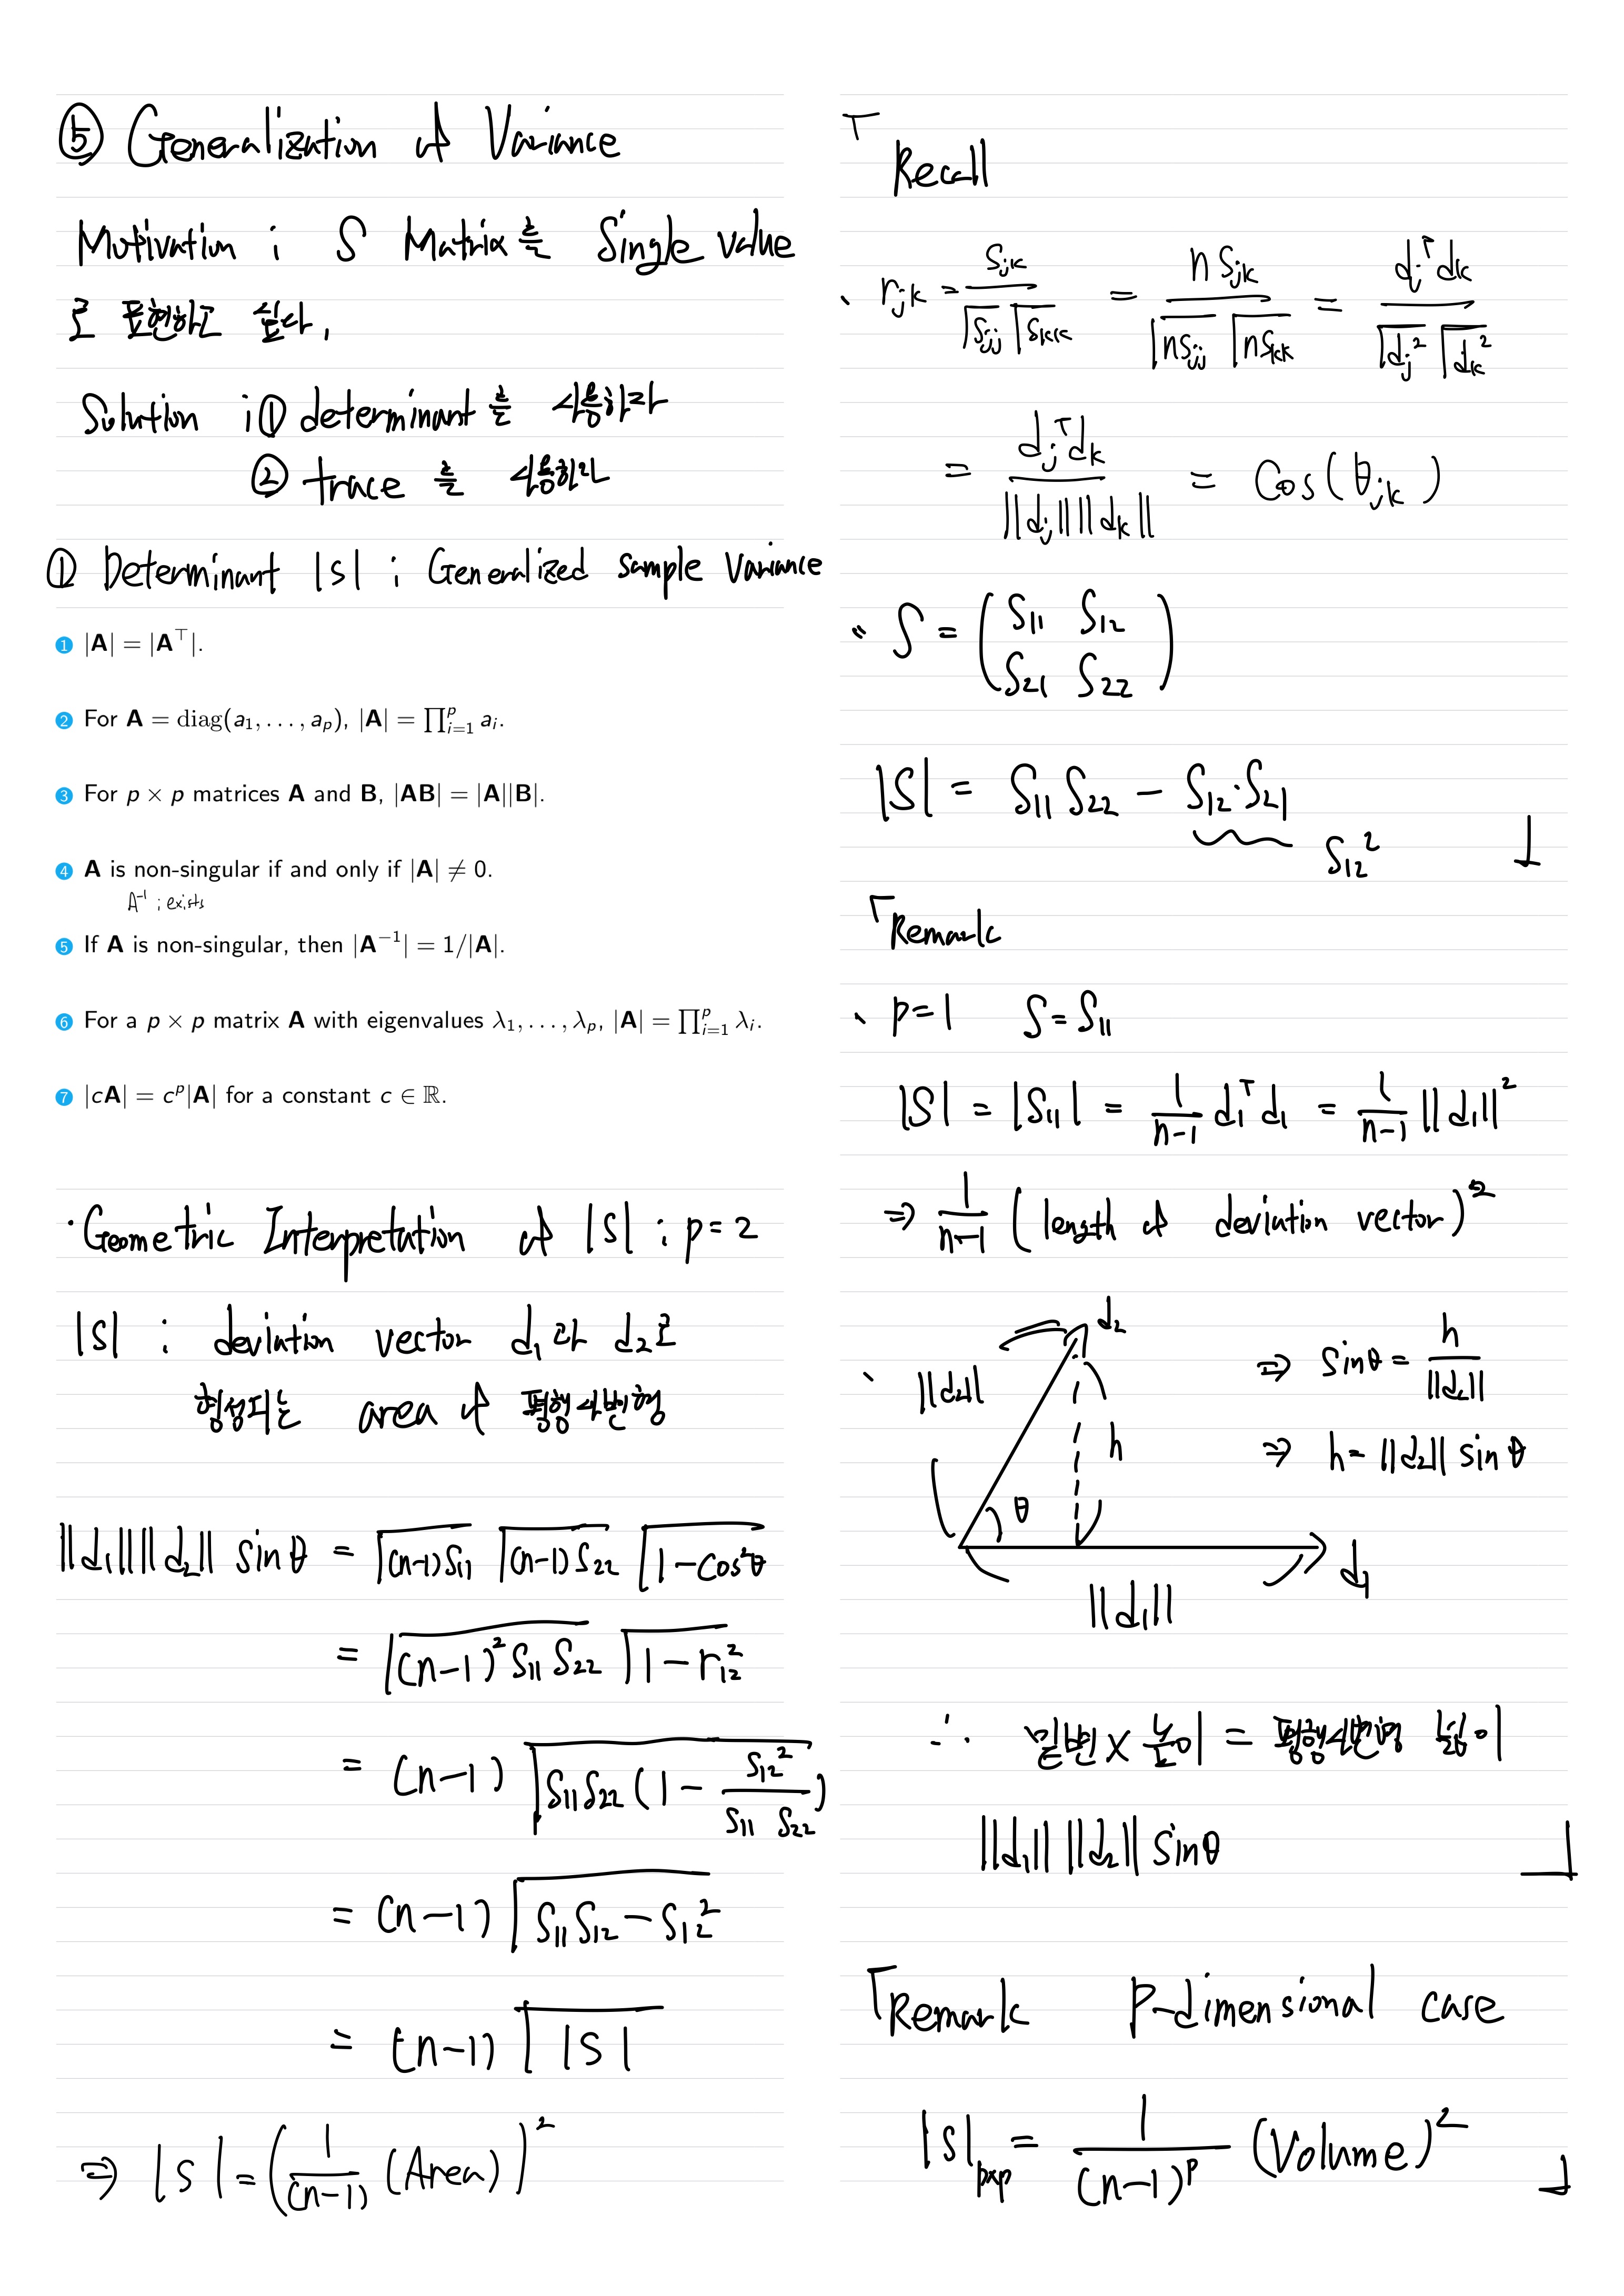 ⑤ Generalization of Variance
Motivation ; S Matrix를 Single value
로 표현하고 싶다.
Solution ; ① determinant를 사용하자
② trace를 사용하자
① Determinant |S| ; Generalized sample variance
1 |A| = |A⊤|.
2 For A = diag(a₁, . . . , aₚ), |A| = ∏ᵖᵢ₌₁ aᵢ.
3 For p × p matrices A and B, |AB| = |A||B|.
4 A is non-singular if and only if |A| ≠ 0.
A⁻¹ ; exists
5 If A is non-singular, then |A⁻¹| = 1/|A|.
6 For a p × p matrix A with eigenvalues λ₁, . . . , λₚ, |A| = ∏ᵖᵢ₌₁ λᵢ.
7 |cA| = cᵖ|A| for a constant c ∈ ℝ.
· Geometric Interpretation of |S| ; p=2
|S| ; deviation vector d₁과 d₂로
형성되는 area of 평행사변형
||d₁|| ||d₂|| sinθ = √((n-1)S₁₁) √((n-1)S₂₂) √(1-cos²θ)
= √((n-1)² S₁₁ S₂₂) √(1-r₁₂²)
= (n-1) √(S₁₁S₂₂(1 - S₁₂²/(S₁₁ S₂₂)))
= (n-1) √(S₁₁S₁₂ - S₁₂²)
= (n-1) √|S|
⇒ |S| = (1/(n-1) (Area))²
Recall
· rⱼₖ = Sⱼₖ/(√Sⱼⱼ √Sₖₖ) = nSⱼₖ/(√(nSⱼⱼ) √(nSₖₖ)) = dⱼᵀdₖ/(√(dⱼ²) √(dₖ²))
= dⱼᵀdₖ/(||dⱼ|| ||dₖ||) = Cos(θⱼₖ)
· S = (S₁₁ S₁₂
S₂₁ S₂₂)
|S| = S₁₁ S₂₂ - S₁₂·S₂₁
S₁₂²
Remark
· p=1 S=S₁₁
|S| = |S₁₁| = 1/(n-1) d₁ᵀd₁ = 1/(n-1) ||d₁||²
⇒ 1/(n-1) (length of deviation vector)²
d₂
||d₂||
h
θ
d₁
||d₁||
⇒ sinθ = h/||d₂||
⇒ h = ||d₂|| sinθ
∴ 밑변 × 높이 = 평행사변형 넓이
||d₁|| ||d₂|| sinθ
Remark P-dimensional case
|S|ₚₓₚ = 1/(n-1)ᵖ (Volume)²